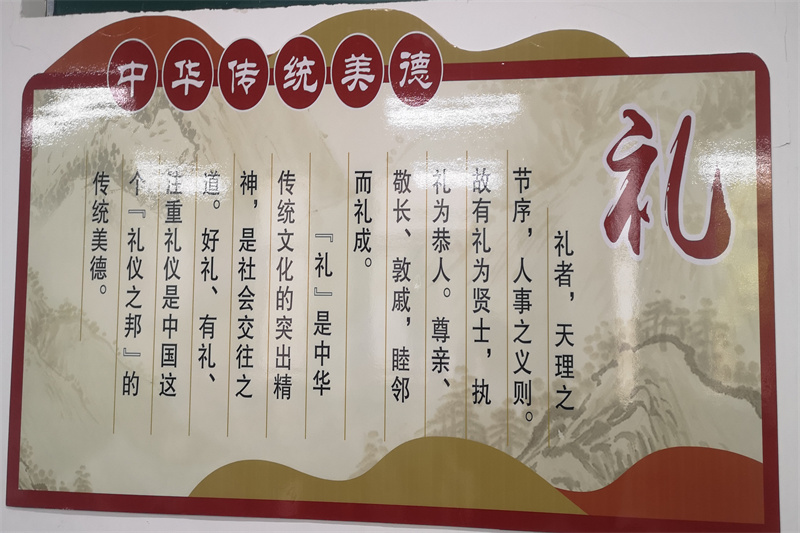 中华传统美德
礼
礼者，天理之
节序，人事之义则。
故有礼为贤士，执
礼为恭人。尊亲、
敬长、敦戚，睦邻
而礼成。
『礼』是中华
传统文化的突出精
神，是社会交往之
道。好礼、有礼、
注重礼仪是中国这
个『礼仪之邦』的
传统美德。